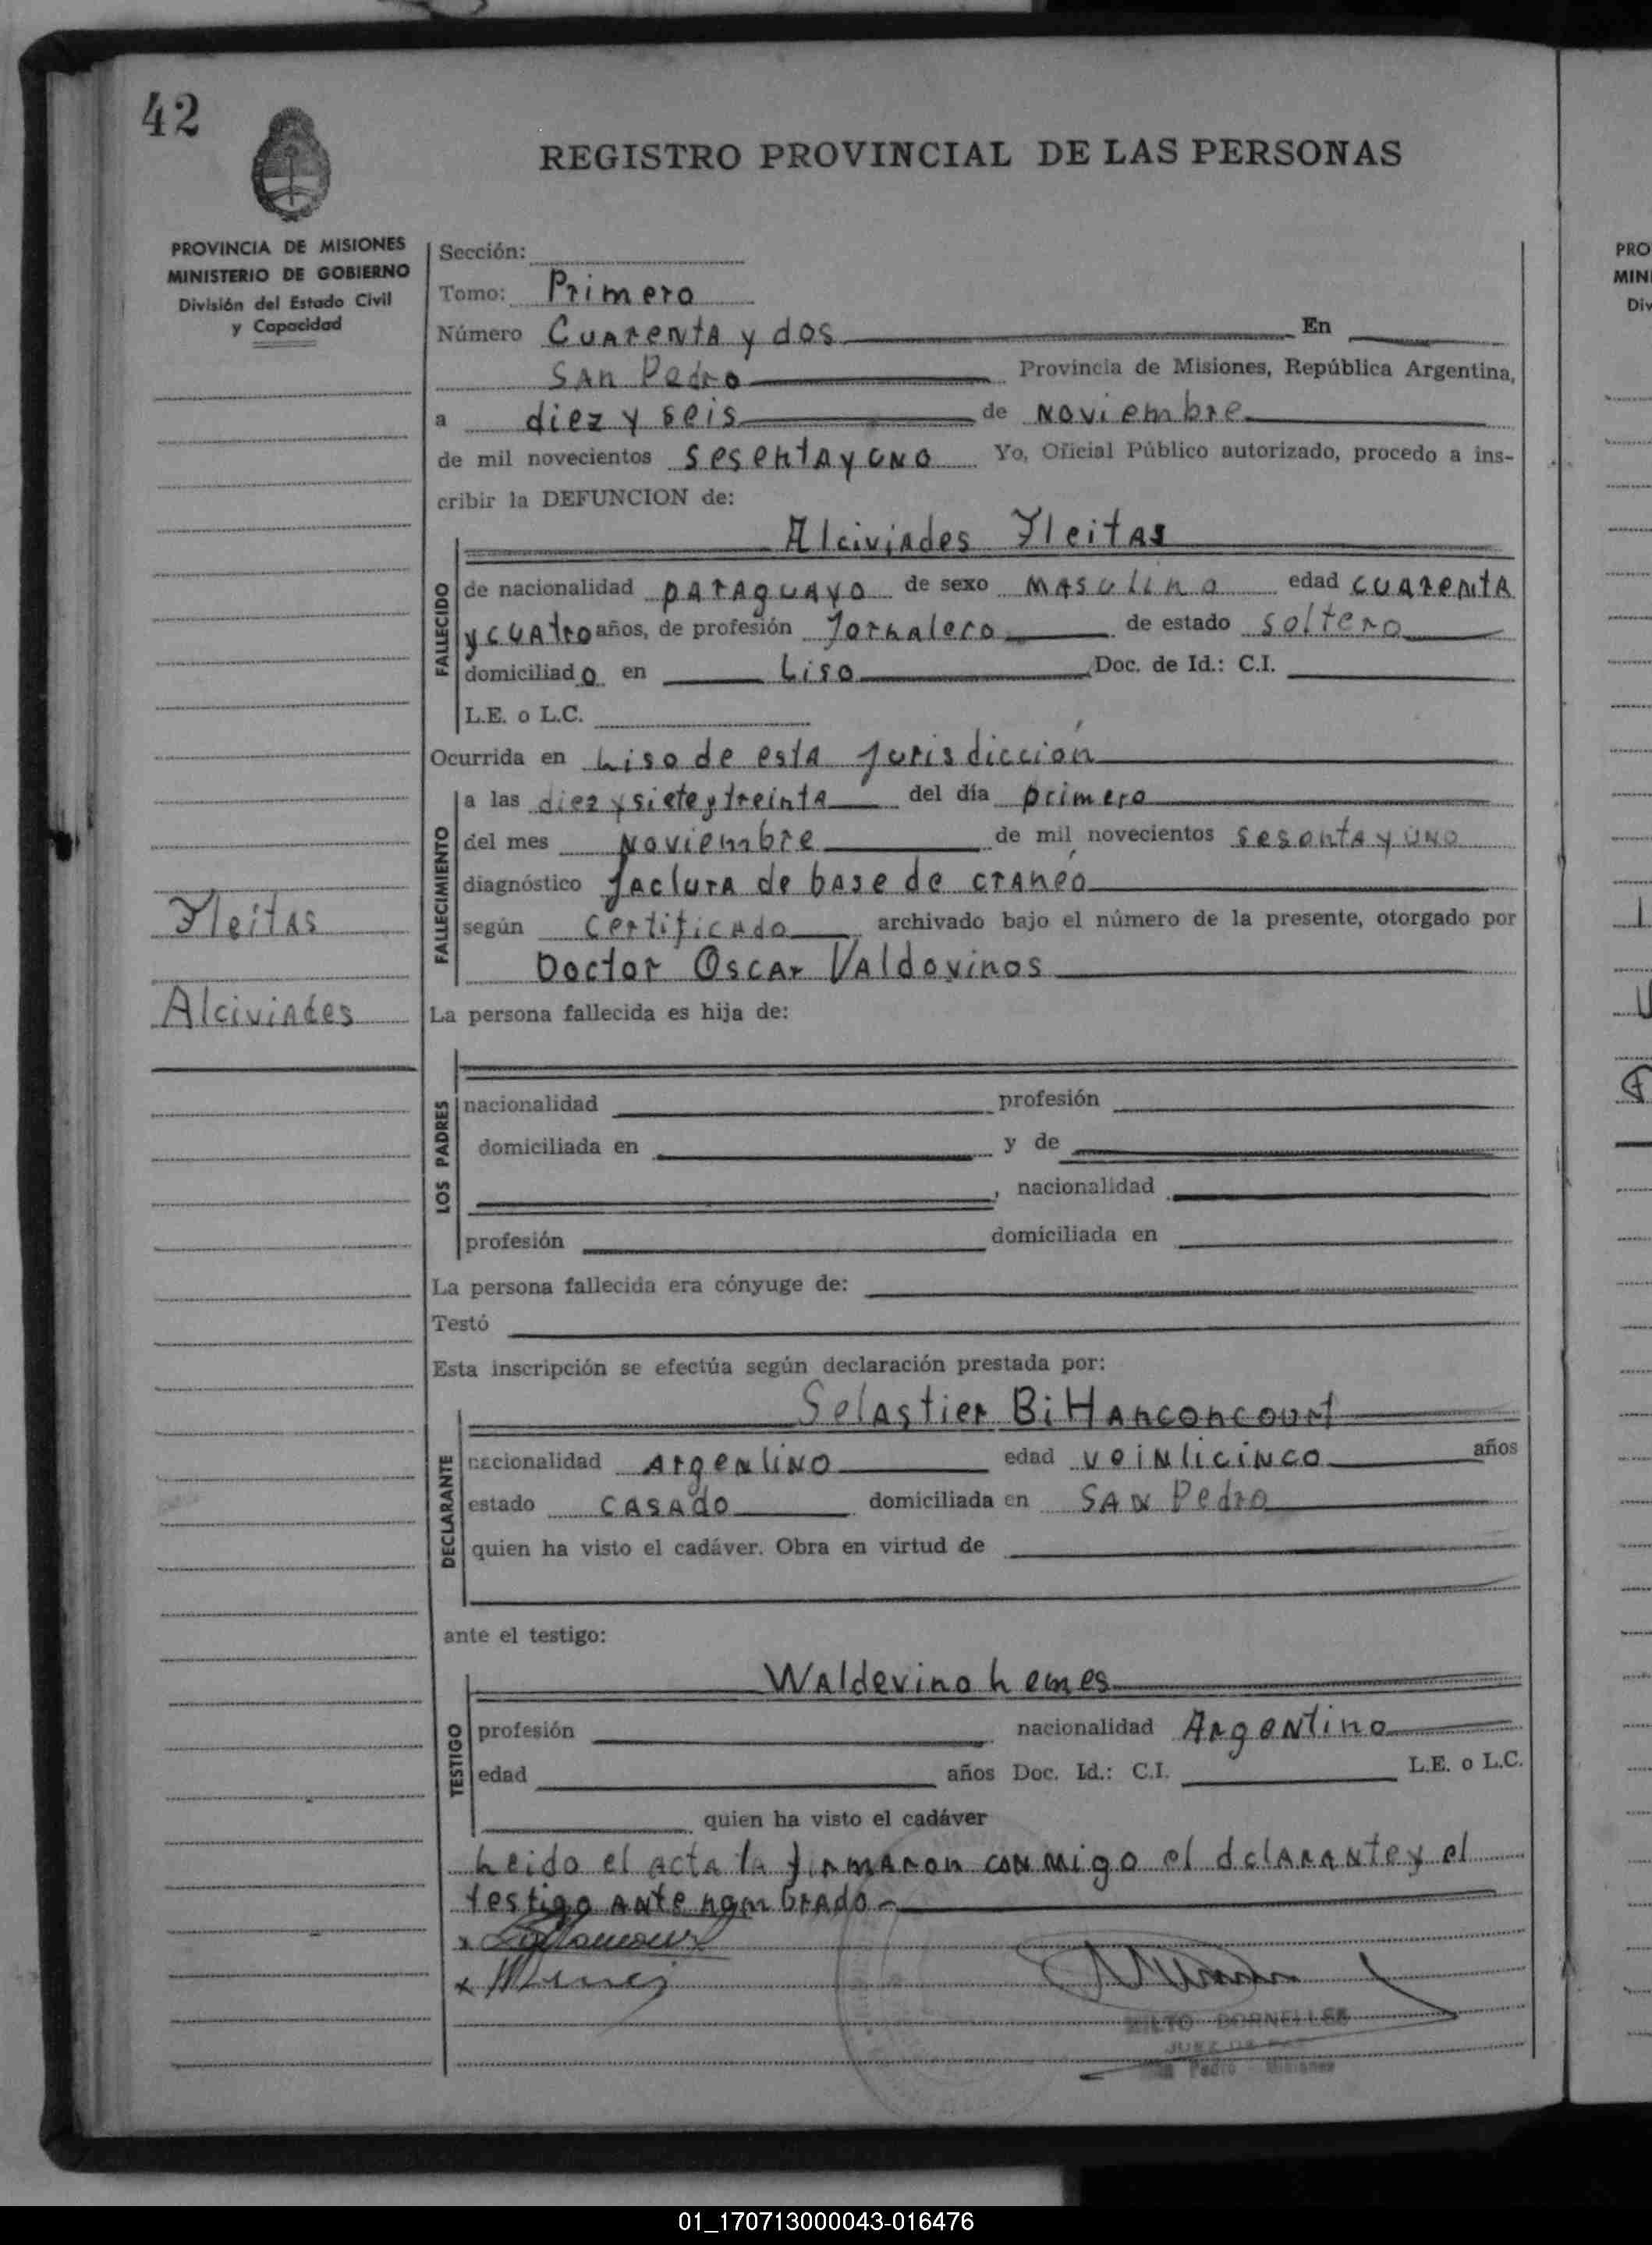 42
REGISTRO PROVINCIAL DE LAS PERSONAS
PROVINCIA DE MISIONES
MINISTERIO DE GOBIERNO
División del Estado Civil
y Capacidad
Sección:
Tomo: Primero
Número Cuarenta y dos En
San Pedro Provincia de Misiones, República Argentina,
a diez y seis de Noviembre
de mil novecientos sesenta y uno Yo, Oficial Público autorizado, procedo a ins-
cribir la DEFUNCION de:
Alciviades Fleitas
FALLECIDO
de nacionalidad paraguayo de sexo Masculino edad cuarenta
y cuatro años, de profesión Jornalero de estado soltero
domiciliado en Liso Doc. de Id.: C.I.
L.E. o L.C.
Ocurrida en Liso de esta Jurisdicción
FALLECIMIENTO
a las diez y siete y treinta del día primero
del mes Noviembre de mil novecientos sesenta y uno
diagnóstico factura de base de craneo
según certificado archivado bajo el número de la presente, otorgado por
Doctor Oscar Valdovinos
Fleitas
Alciviades
La persona fallecida es hija de:
LOS PADRES
nacionalidad profesión
domiciliada en y de
, nacionalidad
profesión domiciliada en
La persona fallecida era cónyuge de:
Testó
Esta inscripción se efectúa según declaración prestada por:
DECLARANTE
nacionalidad Argentino edad veinticinco años
estado casado domiciliada en San Pedro
quien ha visto el cadáver. Obra en virtud de
ante el testigo:
Waldevino Lemes
TESTIGO
profesión nacionalidad Argentino
edad años Doc. Id.: C.I. L.E. o L.C.
quien ha visto el cadáver
Leido el acta la firmaron conmigo el dclarante y el
testigo ante nombrado-
MILTO DORNELLES
JUEZ DE PAZ
San Pedro Misiones
PRO
MIN
Div
01_170713000043-016476